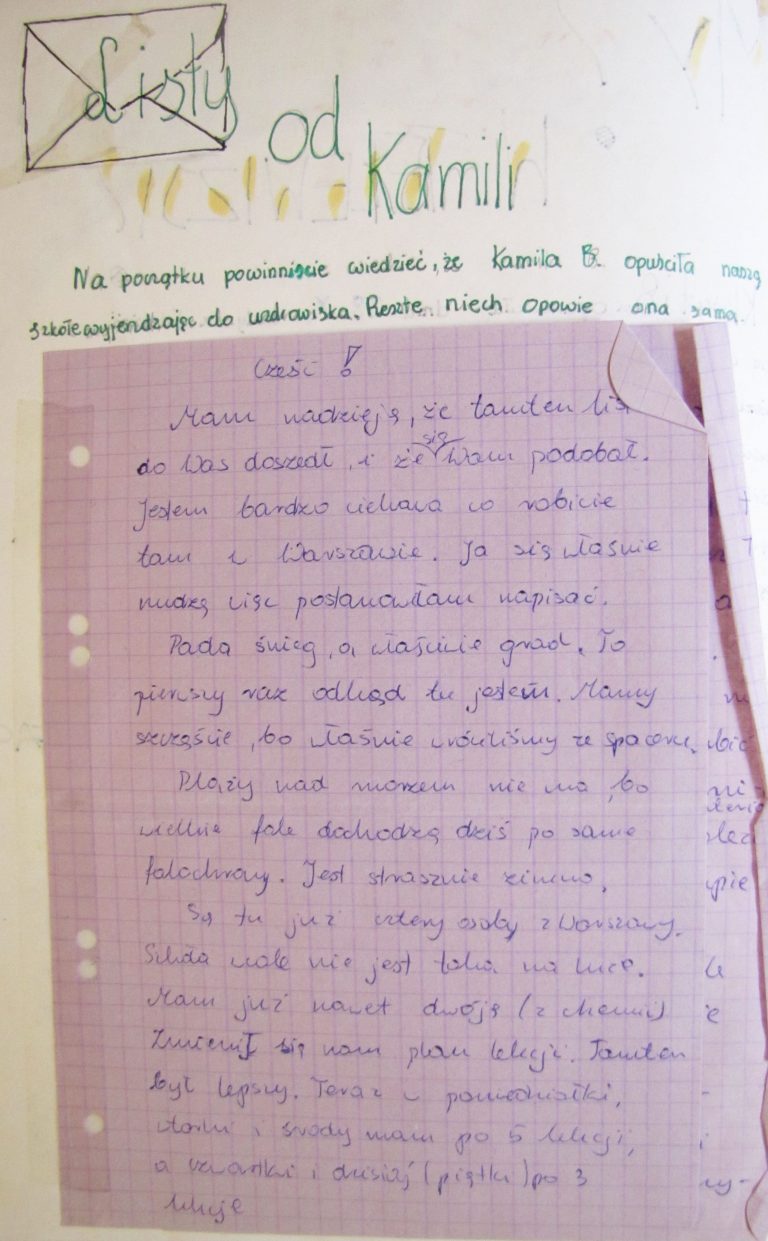 Listy
od
Kamili
Na początku powinniście wiedzieć, że Kamila B. opuściła naszą
szkołę wyjendzając do uzdrowiska. Resztę niech opowie ona sama.
Cześć!
Mam nadzieję, że tamten lis
do Was doszedł, i że się Wam podobał.
Jestem bardzo ciekawa co robicie
tam w Warszawie. Ja się właśnie
nudzę więc postanowiłam napisać.
Pada śnieg, a właściwie grad. To
pierwszy raz odkąd tu jestem. Mamy
szczęście, bo właśnie wróciliśmy ze spaceru.
Plaży nad morzem nie ma, bo
wielkie fale dochodzą dziś po same
falochrony. Jest strasznie zimno.
Są tu już cztery osoby z Warszawy.
Szkoła wcale nie jest taka na luzie.
Mam już nawet dwóję (z chemii)
Zmienił się nam plan lekcji. Tamten
był lepszy. Teraz w poniedziałki,
wtorki i środy mam po 5 lekcji,
a czwartki i dzisiaj (piątki) po 3
lekcje